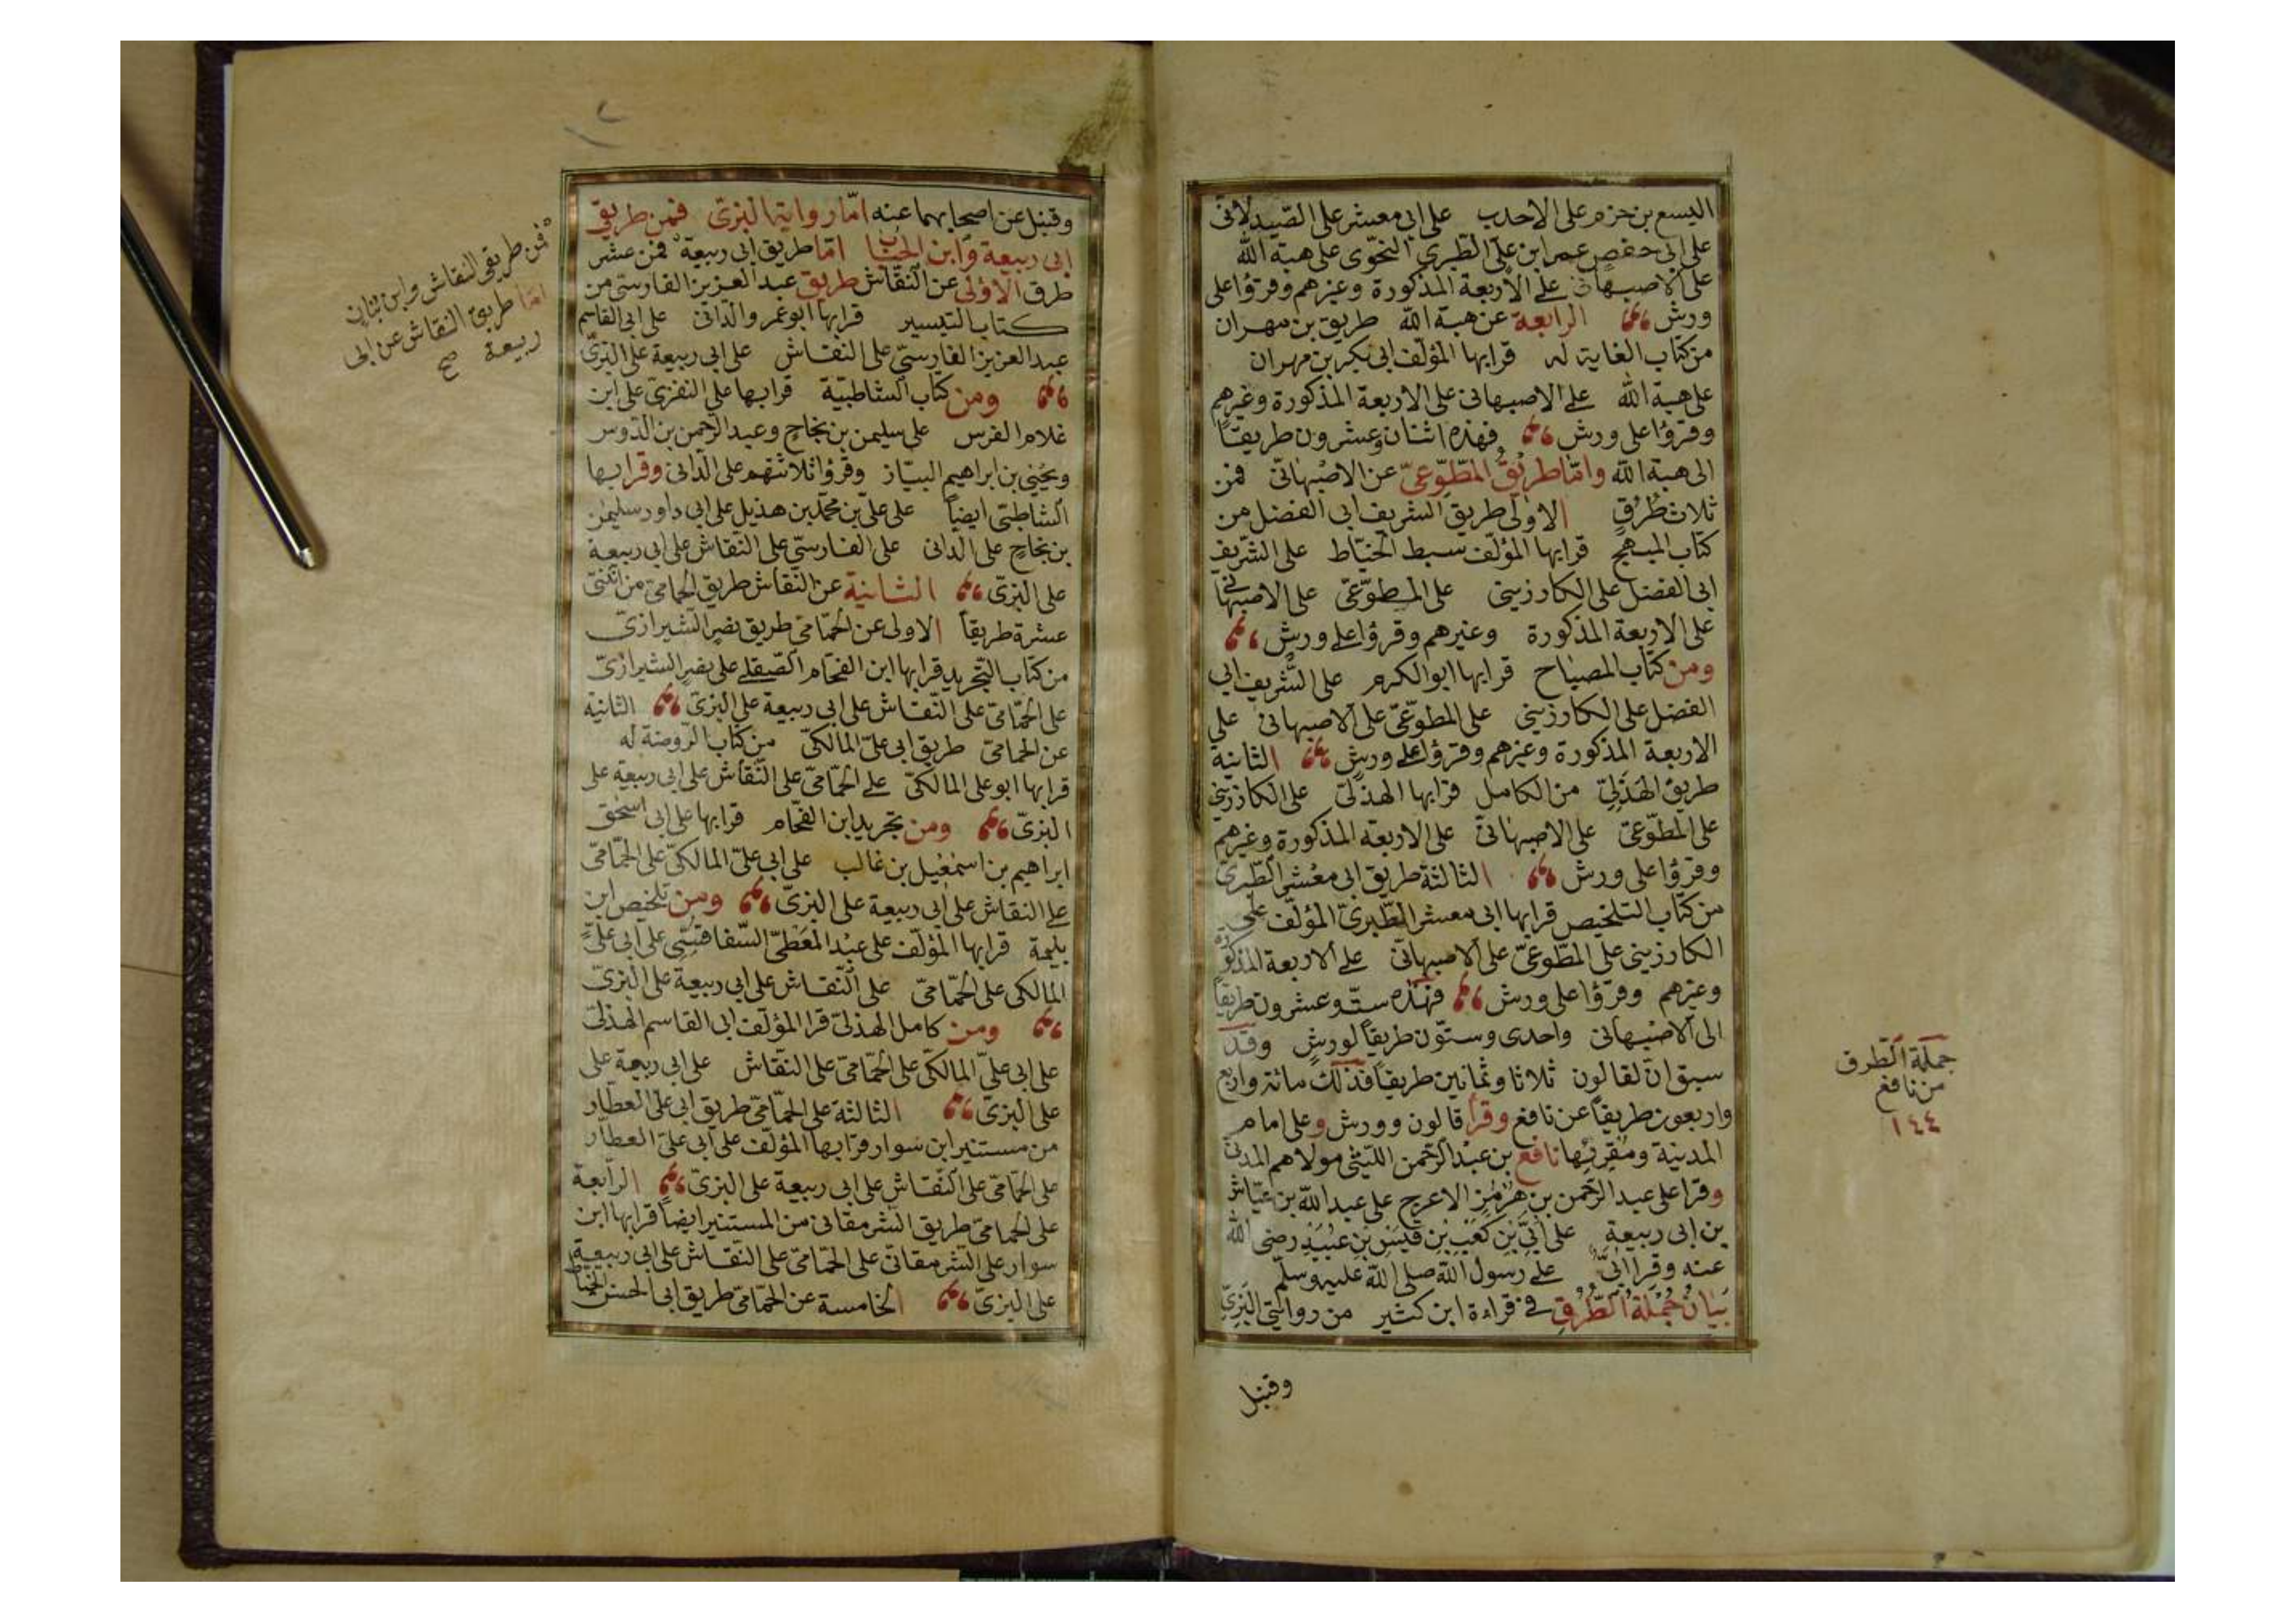 اليسع بن حزم على الاحدب على ابى معشر على الصيدلانى
على ابى حفص عمر ابن على الطبرى النحوى على هبة الله
على الاصبهانى على الاربعة المذكورة وغيرهم وقرؤا على
ورش الرابعة عن هبة الله طريق بن مهران
من كتاب الغاية له قرابها المؤلف ابى بكر بن مهران
على هبة الله على الاصبهانى على الاربعة المذكورة وغيرهم
وقرؤا على ورش فهذه اثنان وعشرون طريقًا
الى هبة الله وامّا طريق المطّوّعىّ عن الاصبهانىّ فمن
ثلاث طرق الاولى طريق الشريف ابى الفضل من
كتاب المبهج قرابها المؤلف سبط الخيّاط على الشريف
ابى الفضل على الكارزينى على المطوّعىّ على الاصبهانى
على الاربعة المذكورة وغيرهم وقرؤا على ورش
ومن كتاب المصباح قرابها ابوالكرم على الشريف ابى
الفضل على الكارزينى على المطوّعىّ على الاصبهانى على
الاربعة المذكورة وغيرهم وقرؤا على ورش الثانية
طريق الهذلىّ من الكامل قرابها الهذلىّ على الكارزينى
على المطّوّعىّ على الاصبهانىّ على الاربعة المذكورة وغيرهم
وقرؤا على ورش الثالثة طريق ابى معشر الطبرىّ
من كتاب التلخيص قرابها ابى معشر الطبرىّ المؤلف على
الكارزينى على المطّوعىّ على الاصبهانىّ على الاربعة المذكورة
وغيرهم وقرؤا على ورش فهذه ستّ وعشرون طريقًا
الى الاصبهانى واحدى وستّون طريقًا لورش وقد
سبق انّ لقالون ثلاثا وثمانين طريقًا فذلك مائة واربع
واربعون طريقًا عن نافع وقرأ قالون وورش وعلى امام
المدينة ومقرئها نافع بن عبد الرحمن الليثى مولاهم المدنى
وقرا على عبد الرحمن بن هرمز الاعرج على عبد الله بن عيّاش
بن ابى ربيعة على ابىّ بن كعب بن قيس بن عبيد رضى الله
عنه وقرا ابىّ على رسول الله صلى الله عليه وسلم
بيان جملة الطرق فى قراءة ابن كثير من روايتى البزّىّ
وقنبل
جملة الطرق
من نافع
١٤٤
وقنبل عن اصحابهما عنه امّا رواية البزىّ فمن طريقى
ابى ربيعة وابن الحباب امّا طريق ابى ربيعة فمن عشر
طرق الاولى عن النقّاش طريق عبد العزيز الفارسىّ من
كتاب التيسير قرابها ابو عمرو الدانى على ابى القاسم
عبد العزيز الفارسىّ على النقاش على ابى ربيعة على البزىّ
ومن كتاب الشاطبيّة قرابها على النفزىّ على ابن
غلام الفرس على سليمن بن نجاح وعبد الرحمن بن الدوس
ويحيى بن ابراهيم البيّاز وقرؤا ثلاثتهم على الدانى وقرابها
الشاطبىّ ايضًا على علىّ بن محمد بن هذيل على ابى داود سليمن
بن نجاح على الدانى على الفارسىّ على النقاش على ابى ربيعة
على البزىّ الثانية عن النقاش طريق الحمامىّ من اثنتى
عشرة طريقًا الاولى عن الحمّامىّ طريق نصر الشيرازىّ
من كتاب التجريد قرابها ابن الفحام الصقلى على نصر الشيرازىّ
على الحمّامىّ على النقّاش على ابى ربيعة على البزىّ الثانية
عن الحمامىّ طريق ابى علىّ المالكىّ من كتاب الروضة له
قرابها ابو على المالكىّ على الحمّامىّ على النقاش على ابى ربيعة على
البزىّ ومن تجريد ابن الفحّام قرابها على ابى اسحق
ابراهيم بن اسمعيل بن غالب على ابى علىّ المالكىّ على الحمّامىّ
على النقاش على ابى ربيعة على البزىّ ومن تلخيص ابن
بليمة قرابها المؤلف على عبد المعطى السفاقسى على ابى علىّ
المالكى على الحمّامىّ على النّقاش على ابى ربيعة على البزىّ
ومن كامل الهذلىّ قرا المؤلف ابى القاسم الهذلىّ
على ابى علىّ المالكىّ على الحمّامىّ على النقّاش على ابى ربيعة على
على البزىّ الثالثة على الحمّامىّ طريق ابى على العطّار
من مستنير ابن سوار قرابها المؤلف على ابى علىّ العطار
على الحمّامىّ على النقّاش على ابى ربيعة على البزىّ الرّابعة
على الحمامىّ طريق الشرمقانى من المستنير ايضًا قرابها ابن
سوار على الشرمقانىّ على الحمّامىّ على النقّاش على ابى ربيعة
على البزىّ الخامسة عن الحمّامىّ طريق ابى الحسن الخيّاط
فمن طريقى النقاش وابن بنان
امّا طريق النقاش عن ابى
ربيعة صح